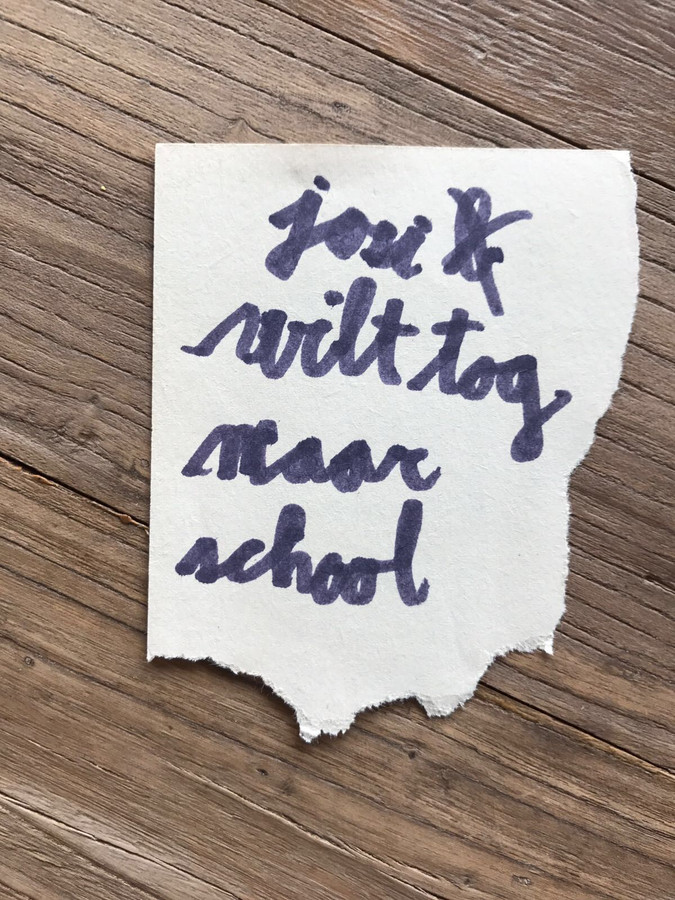 josi
wilt tog
naar
school